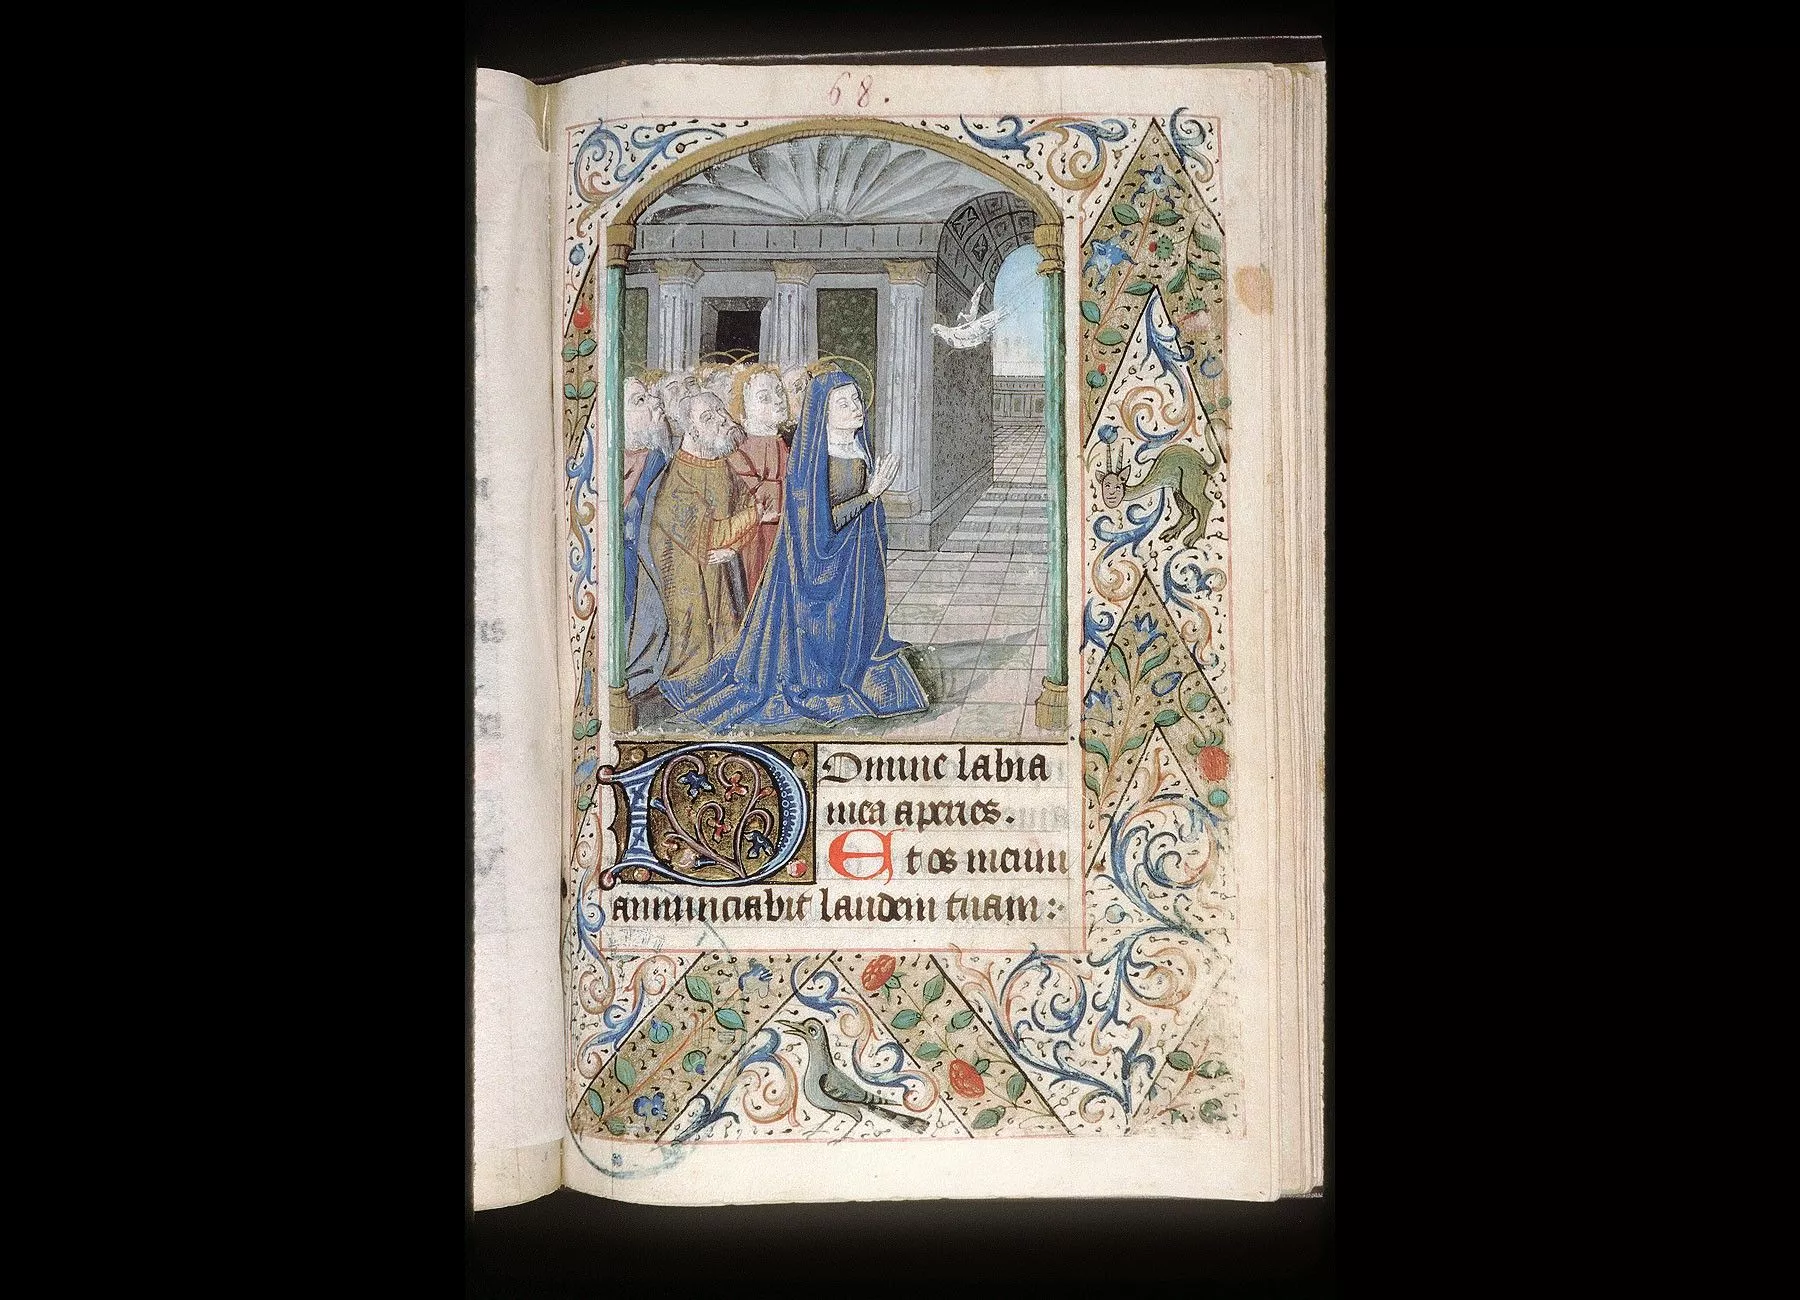 68.
Domine labia
mea aperies.
Et os meum
annunciabit laudem tuam :·